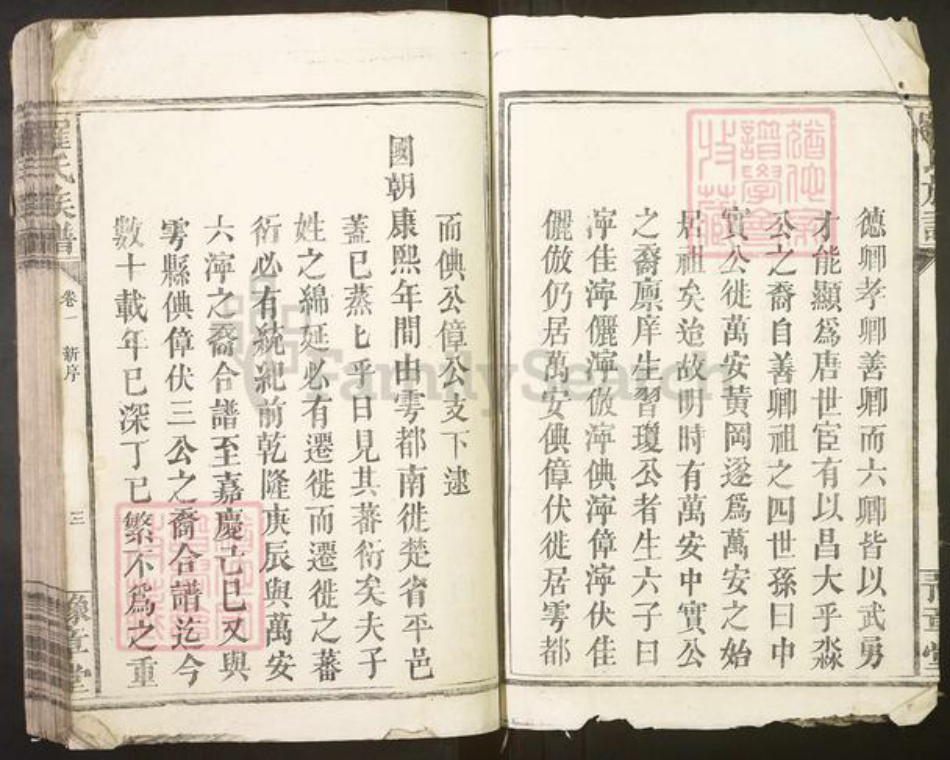 德卿孝卿善卿而六卿皆以武勇
才能顯爲唐世宦有以昌大乎淼
公之裔自善卿祖之四世孫曰中
實公徙萬安黃岡遂爲萬安之始
居祖矣迨故明時有萬安中實公
之裔廪庠生習瓊公者生六子曰
濘佳濘儷濘倣濘倎濘偉濘伏佳
儷倣仍居萬安倎偉伏徙居雩都
而倎公偉公支下逮
國朝康熙年間由雩都南徙楚省平邑
蓋已蒸匕乎日見其蕃衍矣夫子
姓之綿延必有遷徙而遷徙之蕃
衍必有統紀前乾隆庚辰與萬安
六濘之裔合譜至嘉慶己巳又與
雩縣倎偉伏三公之裔合譜迄今
數十載年已深丁已繁不爲之重
羅氏族譜
卷一
新序
三
豫章堂
FamilySearch